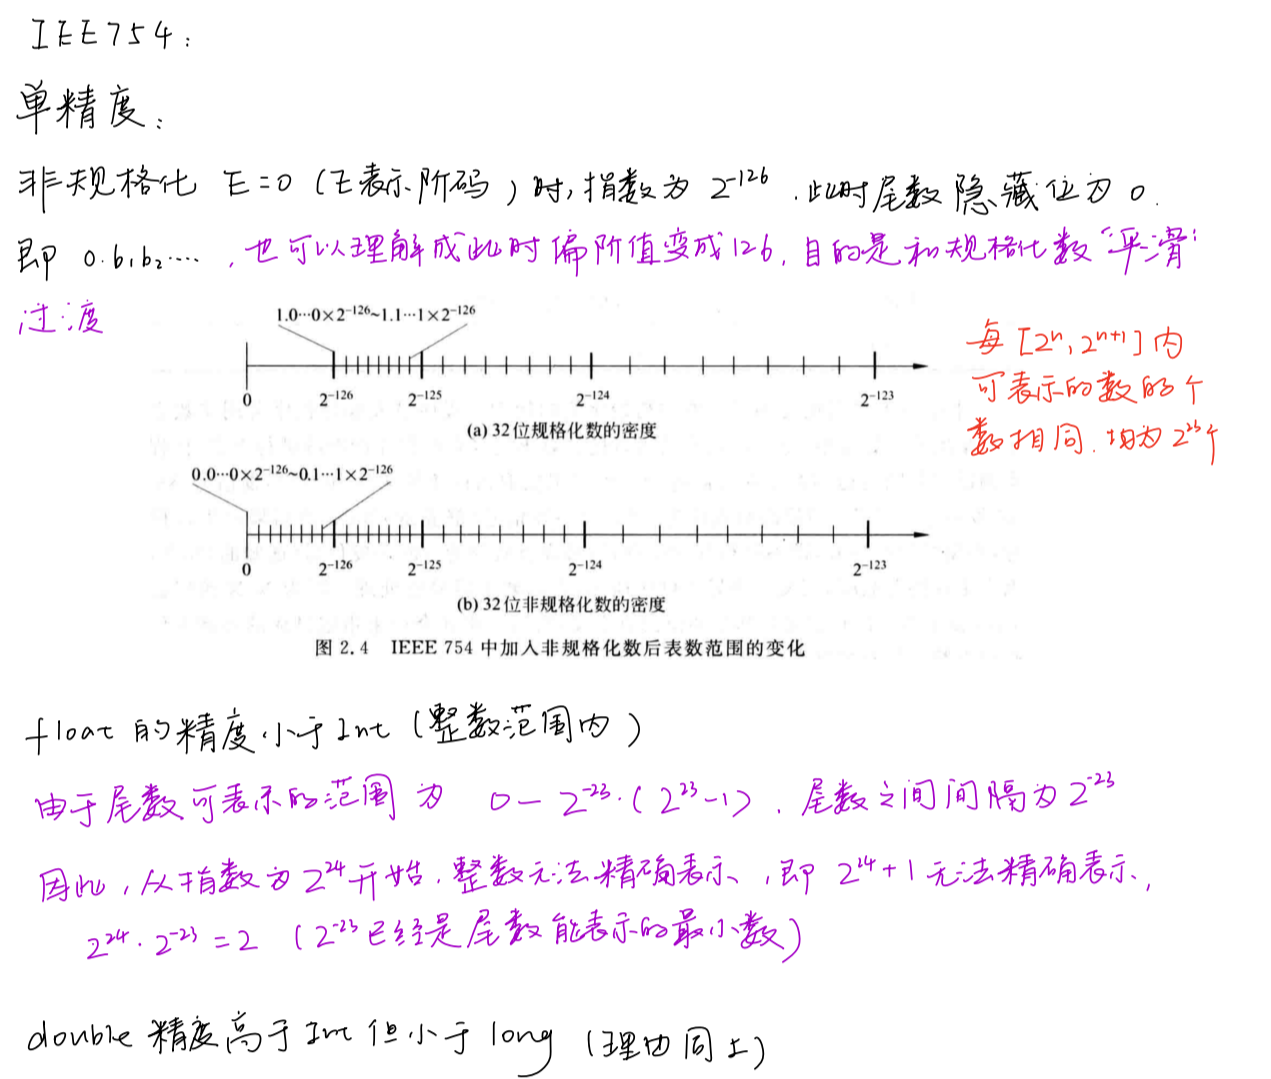 IEE754:
单精度:
非规格化 E=0 (E表示阶码) 时,指数为 2^-126 .此时尾数隐藏位为 0.
即 0.b₁b₂····· ,也可以理解成此时偏阶值变成126,目的是和规格化数“平滑”
过渡
1.0···0×2^-126~1.1···1×2^-126
0 2^-126 2^-125 2^-124 2^-123
(a) 32位规格化数的密度
每 [2^n, 2^n+1] 内
可表示的数的个
数相同.均为 2^23个
0.0···0×2^-126~0.1···1×2^-126
0 2^-126 2^-125 2^-124 2^-123
(b) 32位非规格化数的密度
图 2.4 IEEE 754 中加入非规格化数后表数范围的变化
float 的精度小于 Int (整数范围内)
由于尾数可表示的范围为 0 — 2^-23·(2^23-1) . 尾数之间间隔为 2^-23
因此,从指数为 2^24 开始.整数无法精确表示,即 2^24+1 无法精确表示,
2^24·2^-23=2 (2^-23 已经是尾数能表示的最小数)
double 精度高于 Int 但小于 long (理由同上)